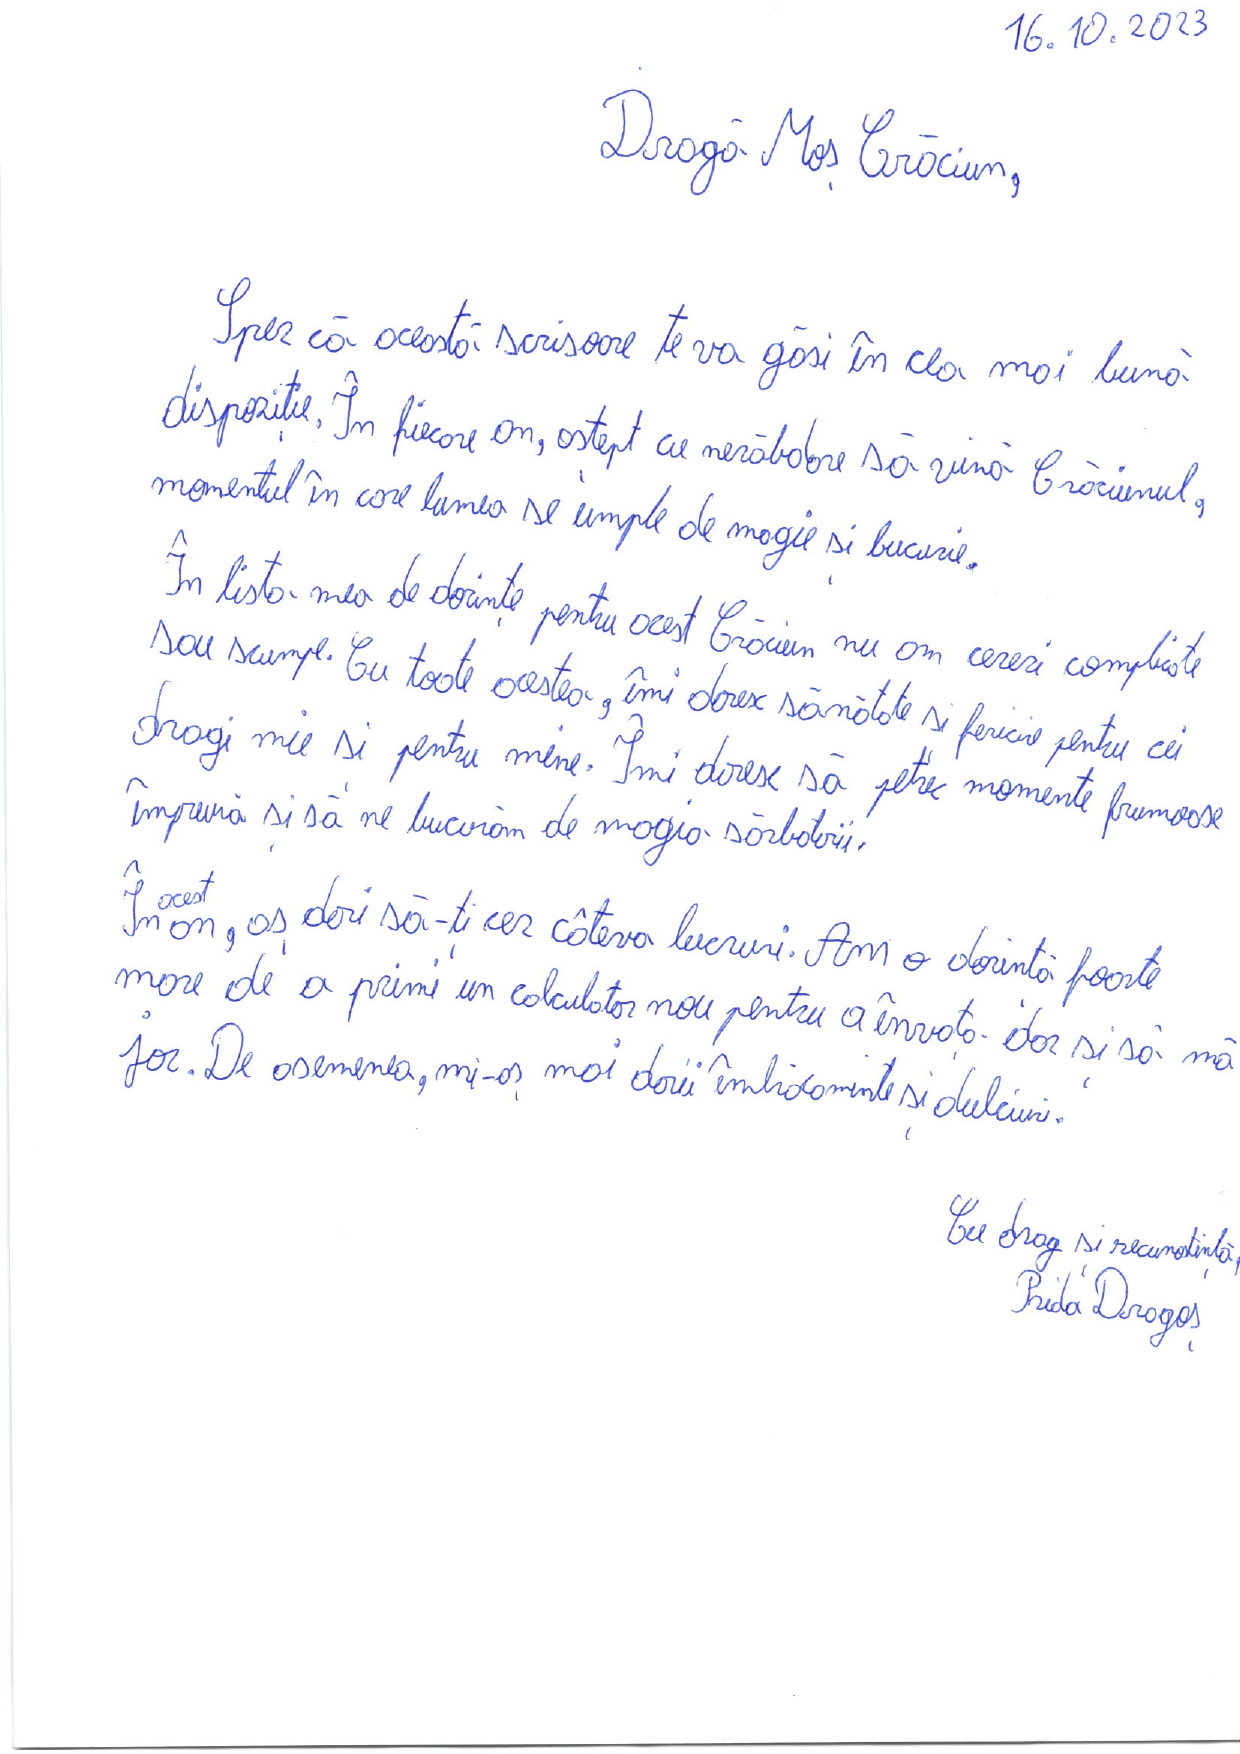 16.10.2023
Dragă Moș Crăciun,
Sper că această scrisoare te va găsi în cea mai bună
dispoziție. În fiecare an, aștept cu nerăbdare să vină Crăciunul,
momentul în care lumea se umple de magie și bucurie.
În lista mea de dorințe pentru acest Crăciun nu am cereri complicate
sau scumpe. Cu toate acestea, îmi doresc sănătate si fericire pentru cei
dragi mie si pentru mine. Îmi doresc să petrec momente frumoase
împreună și să ne bucurăm de magia sărbătorii.
În acest an, aș dori să-ți cer câteva lucruri. Am o dorință foarte
mare de a primi un calculator nou pentru a învăța dar și să mă
joc. De asemenea, mi-aș mai dorii îmbrăcaminte și dulciuri.
Cu drag și recunoștință,
Prida Dragoș